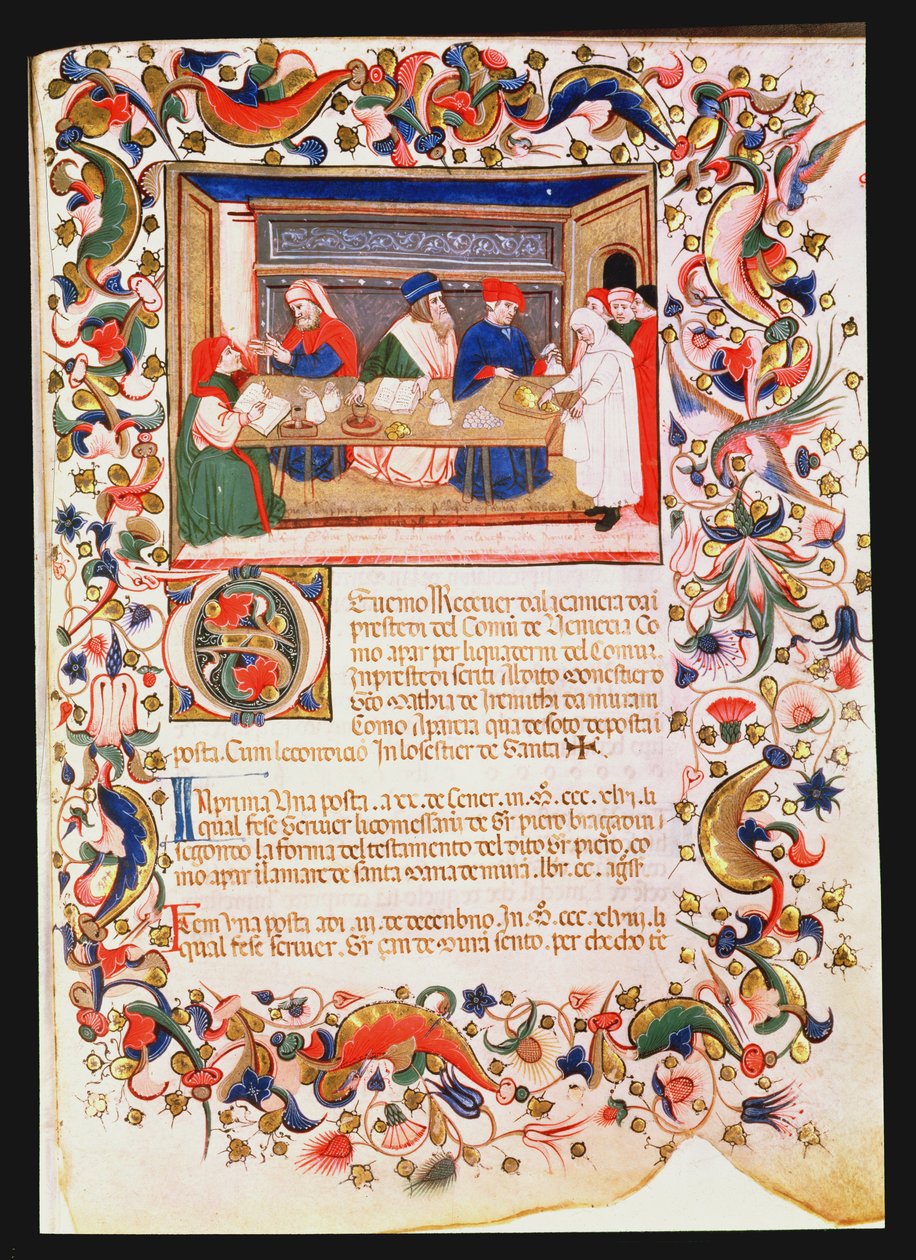 Euemo Receuer dala camera dai
prestedi del Comũ de Veniecia Co
mo apar per li quaterni del Comun.
Inprestedi scriti Al dito Monestier d
Mathia de Iremithi da muram
Como Aparera qua de soto de posta ĩ
posta. Cum le condicio In lo sestier de Santa ✠
In prima Vna posta . a xx. de Gener . in . M̊ . ccc . xlvi . li
qual fese scriuer li comessarij de Ŝr piero bragadin
segondo la forma del testamento del dito Ŝr piero . co
mo apar
de santa Maria de . lbr . cc .
Item Vna posta adi . iii . de decenbrio . In . M̊ . ccc . xlviii . li
qual fese scriuer . Ŝr çan de Mura sento . per che cho tē